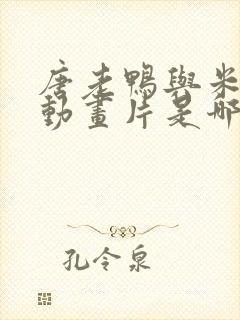 唐老鴨與米
動畫片是哪
孔令泉